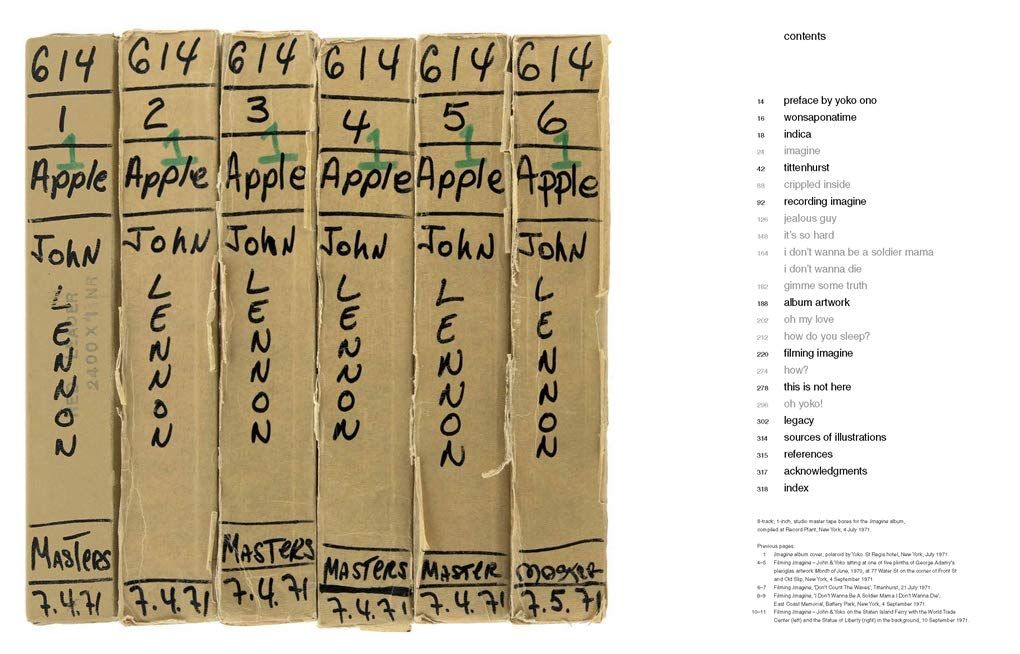 614
1
1
Apple
John
LENNON
LEADER
2400 X 1 NR
MASTERS
7.4.71
614
2
1
Apple
John
LENNON
7.4.71
614
3
1
Apple
John
LENNON
MASTERS
7.4.71
614
4
1
Apple
John
LENNON
MASTERS
7.4.71
614
5
1
Apple
John
LENNON
MASTER
7.4.71
614
6
1
Apple
John
LENNON
7.5.71
contents
14 preface by yoko ono
16 wonsaponatime
18 indica
24 imagine
42 tittenhurst
88 crippled inside
92 recording imagine
126 jealous guy
148 it's so hard
164 i don't wanna be a soldier mama
i don't wanna die
182 gimme some truth
188 album artwork
202 oh my love
212 how do you sleep?
220 filming imagine
274 how?
278 this is not here
296 oh yoko!
302 legacy
314 sources of illustrations
315 references
317 acknowledgments
318 index
8-track, 1-inch, studio master tape boxes for the Imagine album,
compiled at Record Plant, New York, 4 July 1971.
Previous pages:
1 Imagine album cover, polaroid by Yoko. St Regis hotel, New York, July 1971.
4–5 Filming Imagine – John & Yoko sitting at one of five plinths of George Adamy's
plexiglas artwork Month of June, 1970, at 77 Water St on the corner of Front St
and Old Slip, New York, 4 September 1971.
6–7 Filming Imagine, 'Don't Count The Waves', Tittenhurst, 21 July 1971.
8–9 Filming Imagine, 'I Don't Wanna Be A Soldier Mama I Don't Wanna Die',
East Coast Memorial, Battery Park, New York, 4 September 1971.
10–11 Filming Imagine – John & Yoko on the Staten Island Ferry with the World Trade
Center (left) and the Statue of Liberty (right) in the background, 10 September 1971.